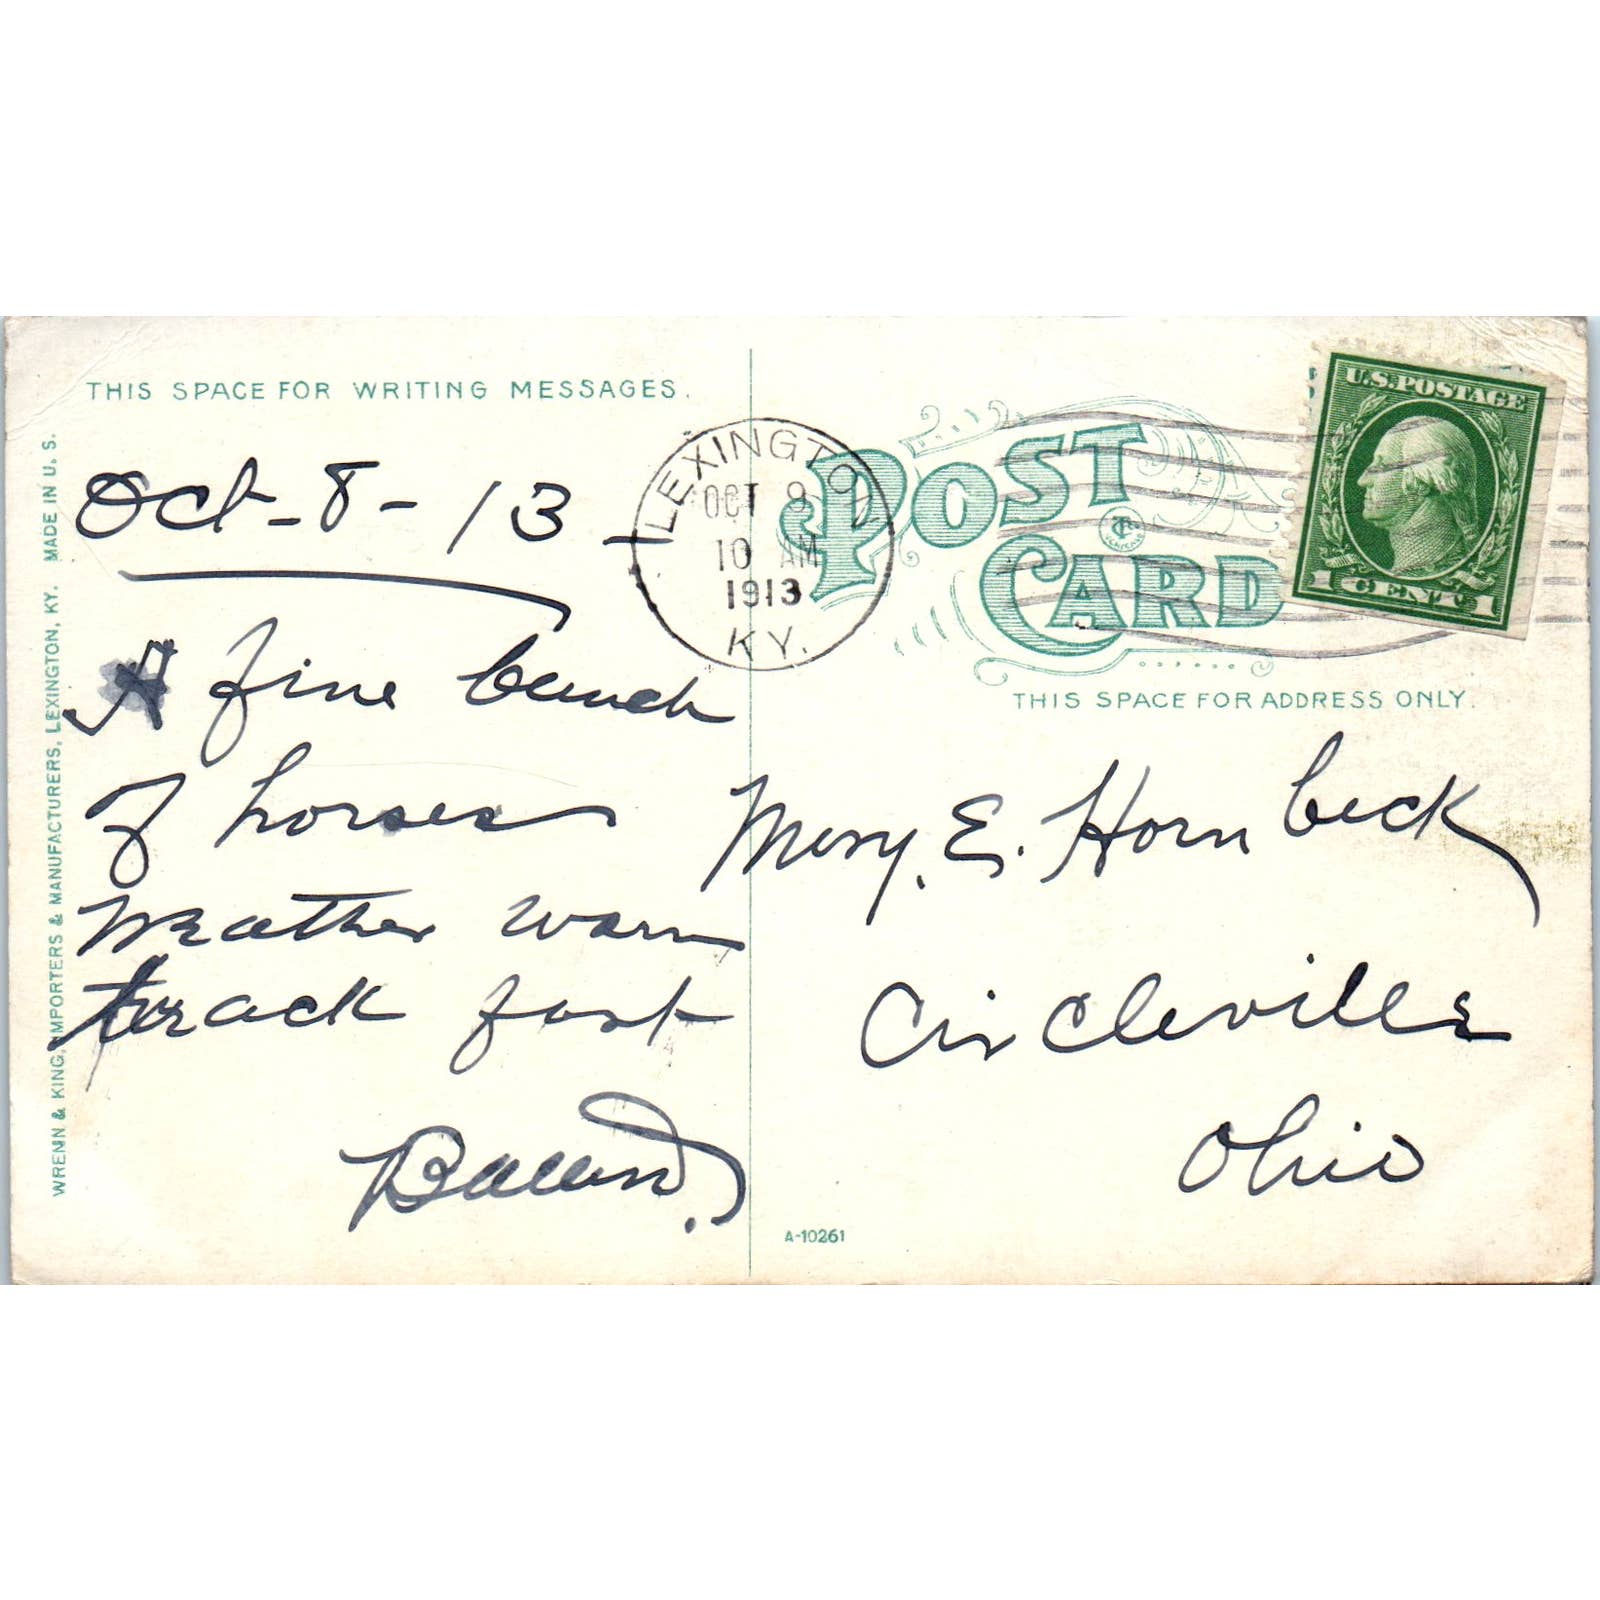 THIS SPACE FOR WRITING MESSAGES.
Oct-8-13
A fine bunch
of horses
Weather warm
track fast
WRENN & KING, IMPORTERS & MANUFACTURERS, LEXINGTON, KY. MADE IN U. S.
LEXINGTON
OCT 8
10 AM
1913
KY.
POST
CARD
U.S. POSTAGE
1 CENT 1
THIS SPACE FOR ADDRESS ONLY.
Mary. E. Hornbeck
Circleville
Ohio
A-10261